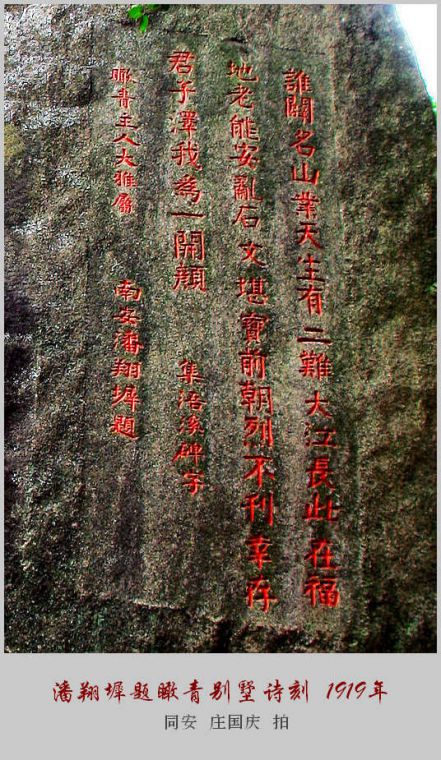 誰闢名山業天生有二難大江長此在福
地老能安亂石文堪寶前朝烈不刊幸存
君子澤我為一開顏 集浯溪碑字
瞰青主人大雅屬 南安潘翔墀題
潘翔墀题瞰青别墅诗刻 1919年
同安 庄国庆 拍